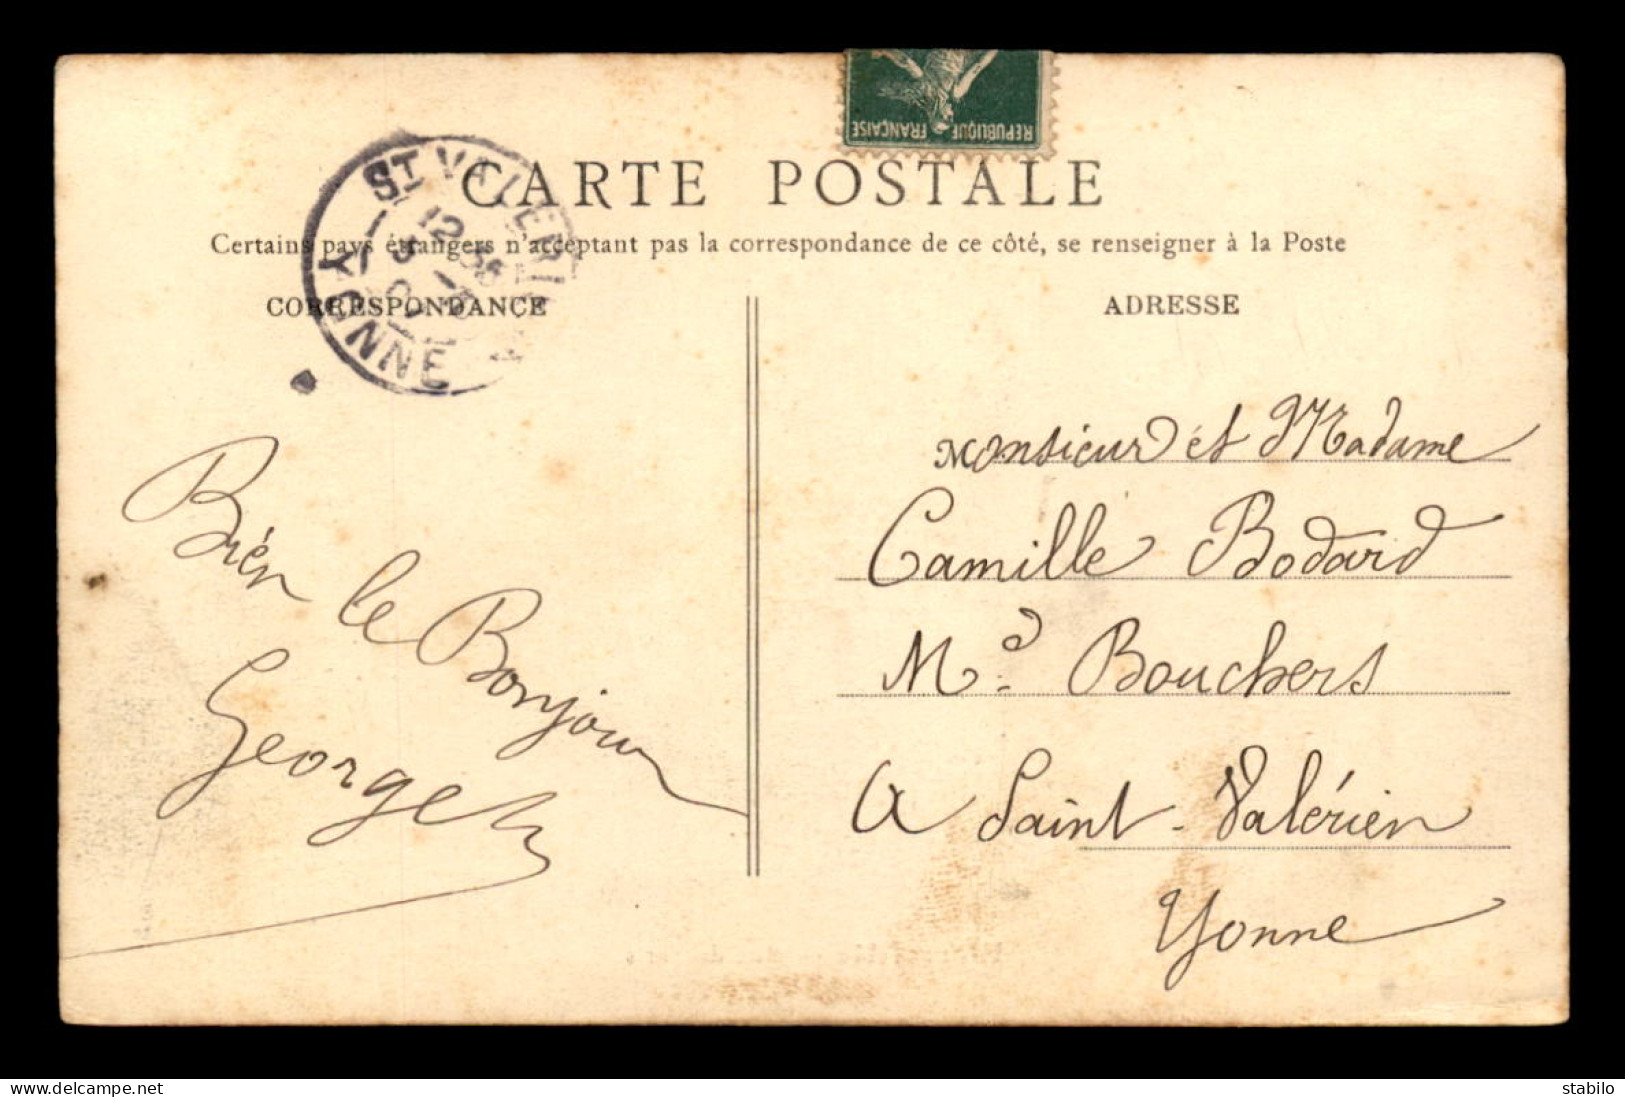 REPUBLIQUE FRANÇAISE
CARTE POSTALE
Certains pays étrangers n'acceptant pas la correspondance de ce côté, se renseigner à la Poste
CORRESPONDANCE
ADRESSE
ST VALERIEN
12 35
3 -8
YONNE
Bien le Bonjour
Georges
Monsieur et Madame
Camille Bodard
Md. Bouchers
A Saint-Valérien
Yonne
delcampe.net
stabilo